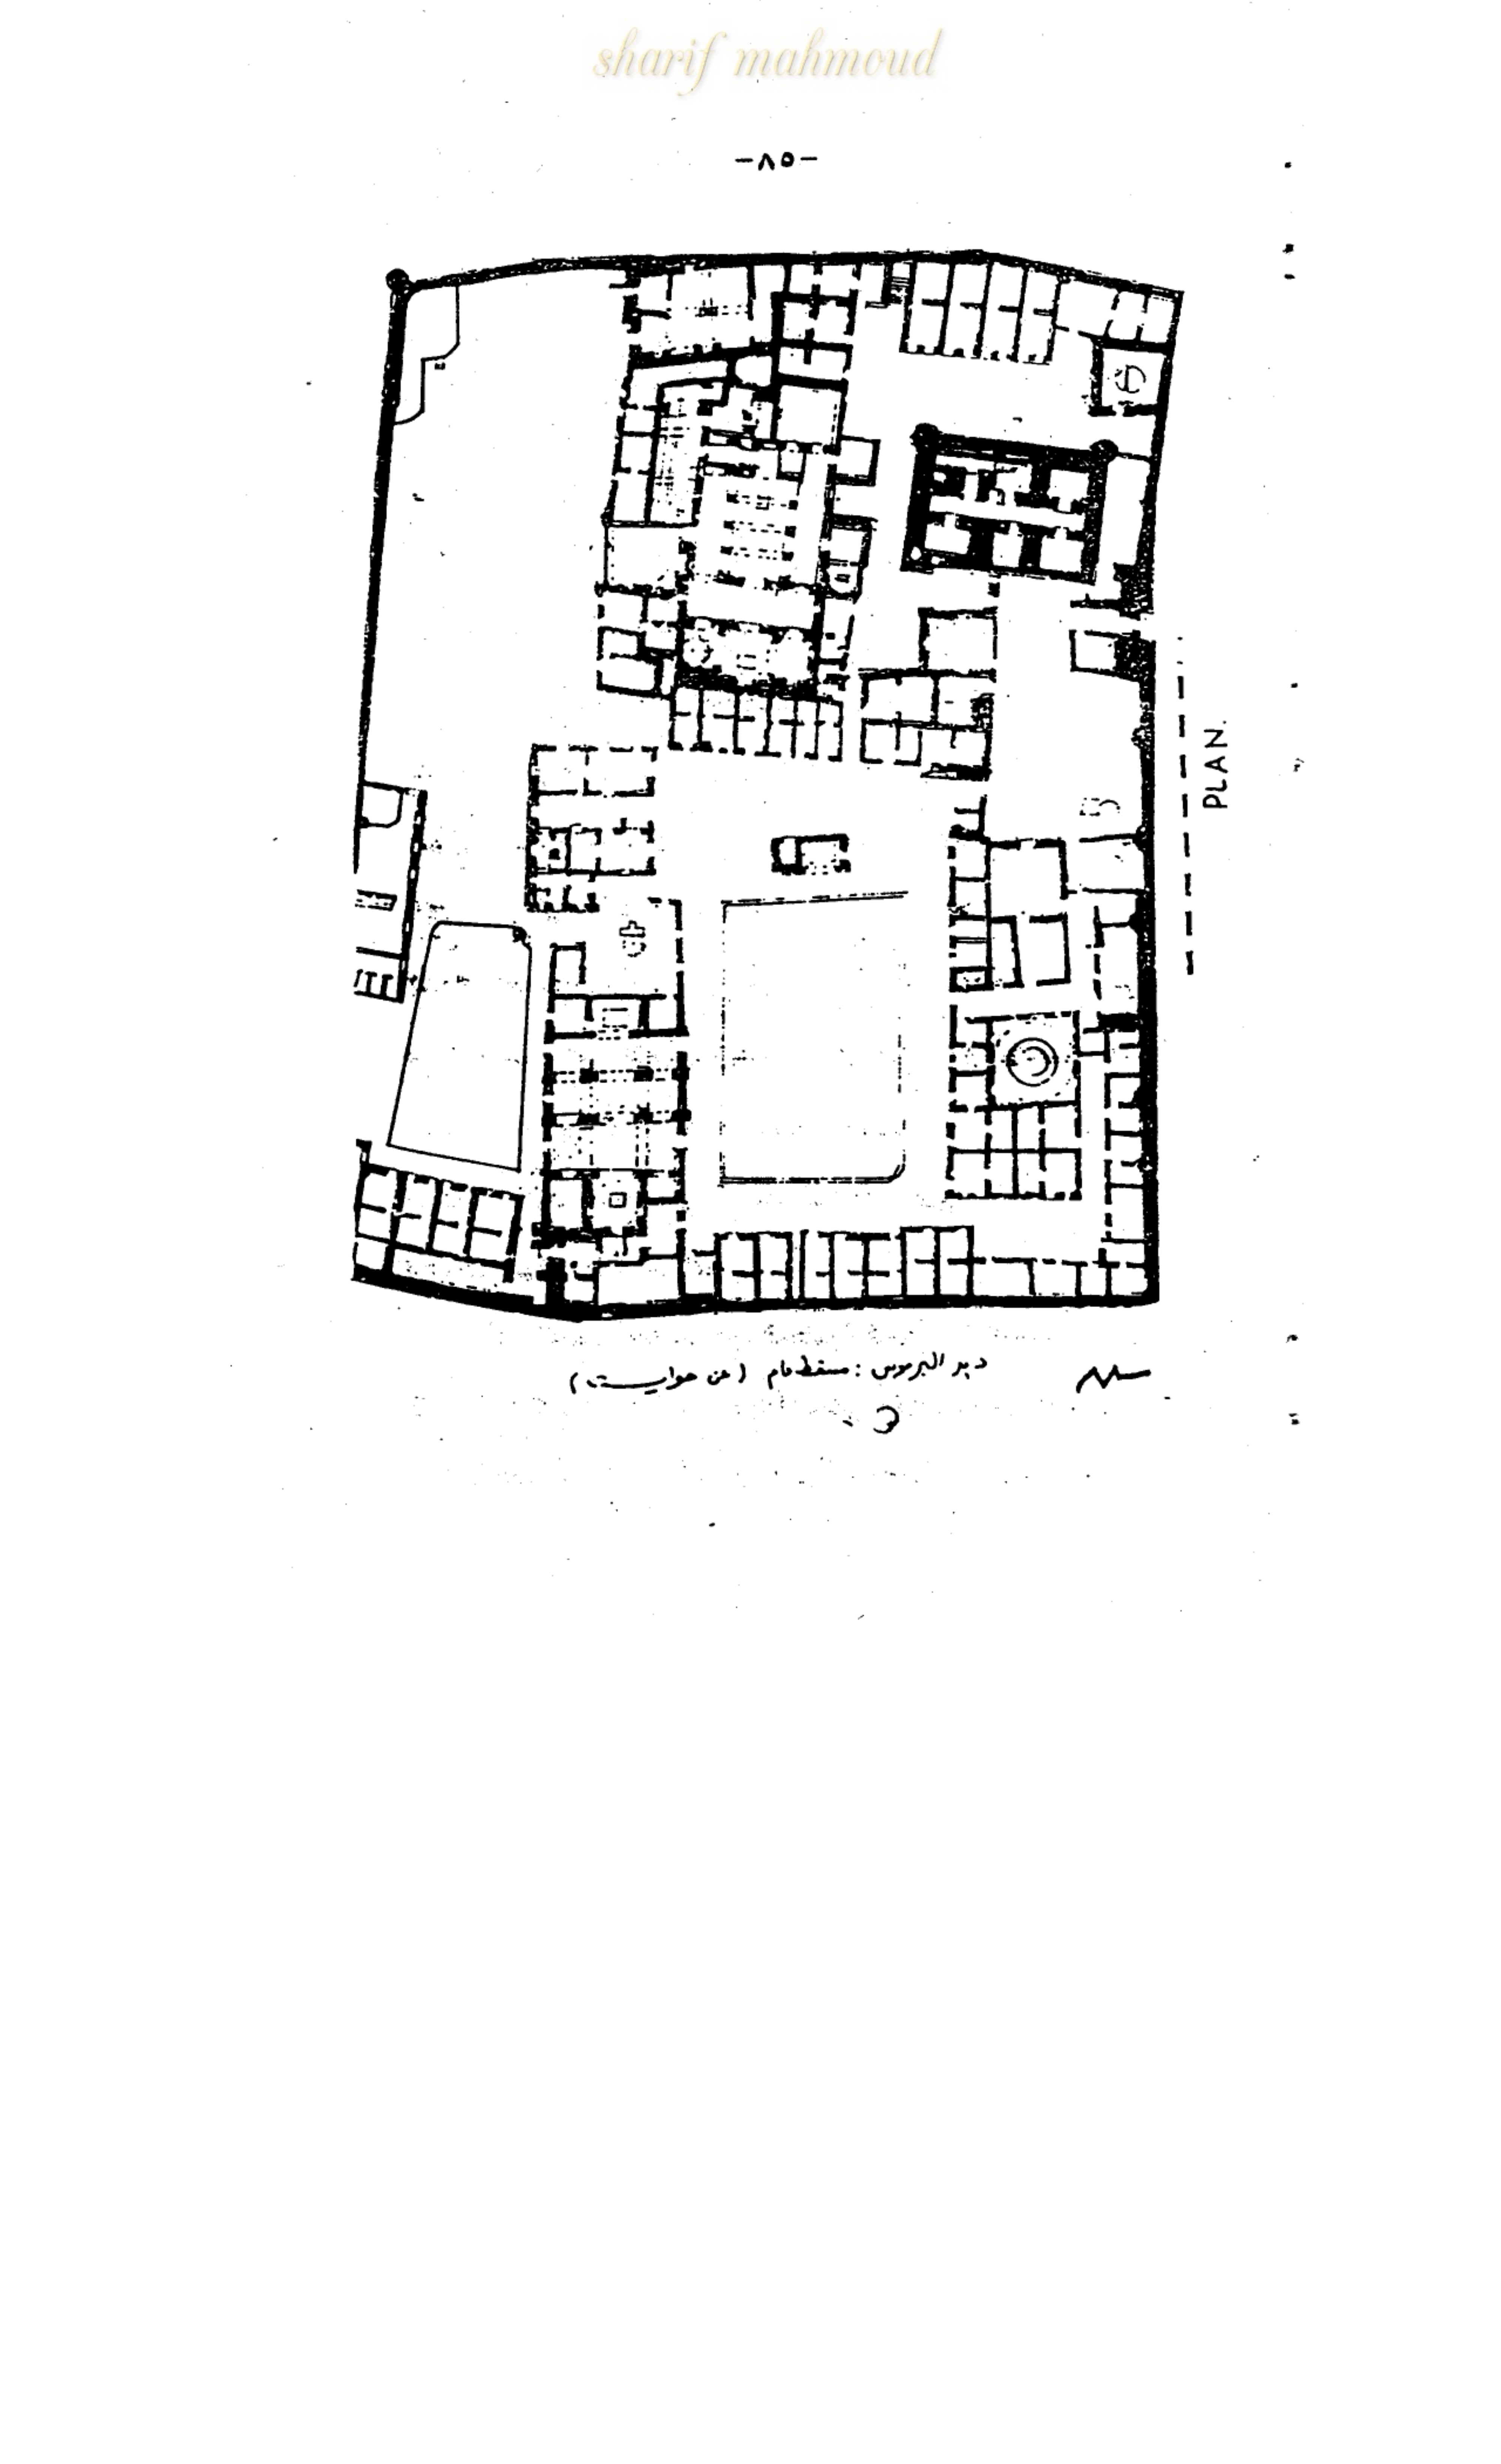 sharif mahmoud
-٨٥-
PLAN.
دير البرموس : مسقط عام (عن هوايت)